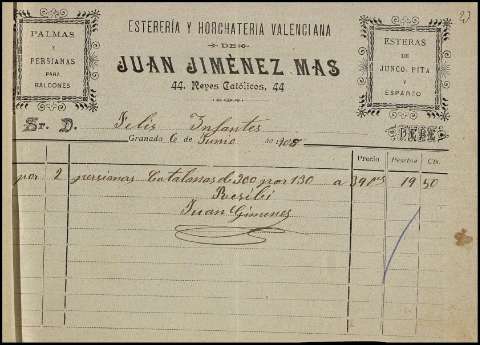 2
ESTERERÍA Y HORCHATERIA VALENCIANA
DE
JUAN JIMÈNEZ MAS
44, Reyes Católicos, 44
PALMAS
Y
PERSIANAS
PARA
BALCONES
ESTERAS
DE
JUNCO, PITA
Y
ESPARTO
Sr. D. Felix Infantes
DEBE
Granada 6 de Junio de 1908
Precio Pesetas Cts.
por 2 persianas Catalanas de 300 por 130 a 19 50
Recibi
Juan Gimenes